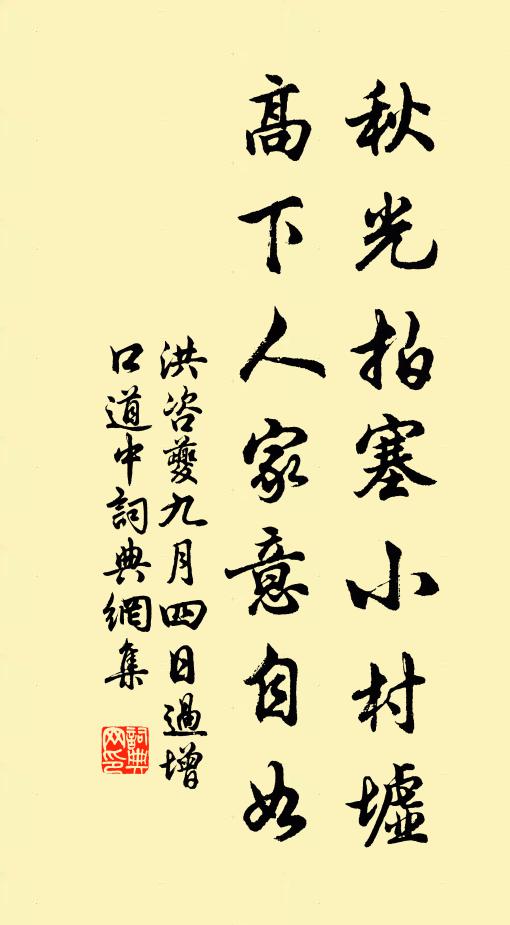 秋光拍塞小村墟
高下人家意自如
洪咨夔九月四日過增
口道中詞典網集
詞典
网印